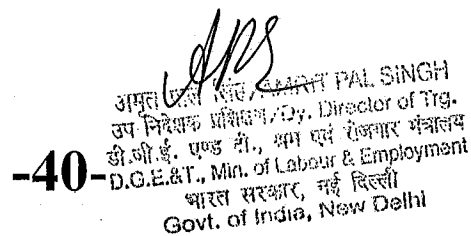 अमृत पाल सिंह/AMRIT PAL SINGH
उप निदेशक प्रशिक्षण/Dy. Director of Trg.
डी.जी.ई. एण्ड टी., श्रम एवं रोजगार मंत्रालय
-40-
D.G.E.&T., Min. of Labour & Employment
भारत सरकार, नई दिल्ली
Govt. of India, New Delhi